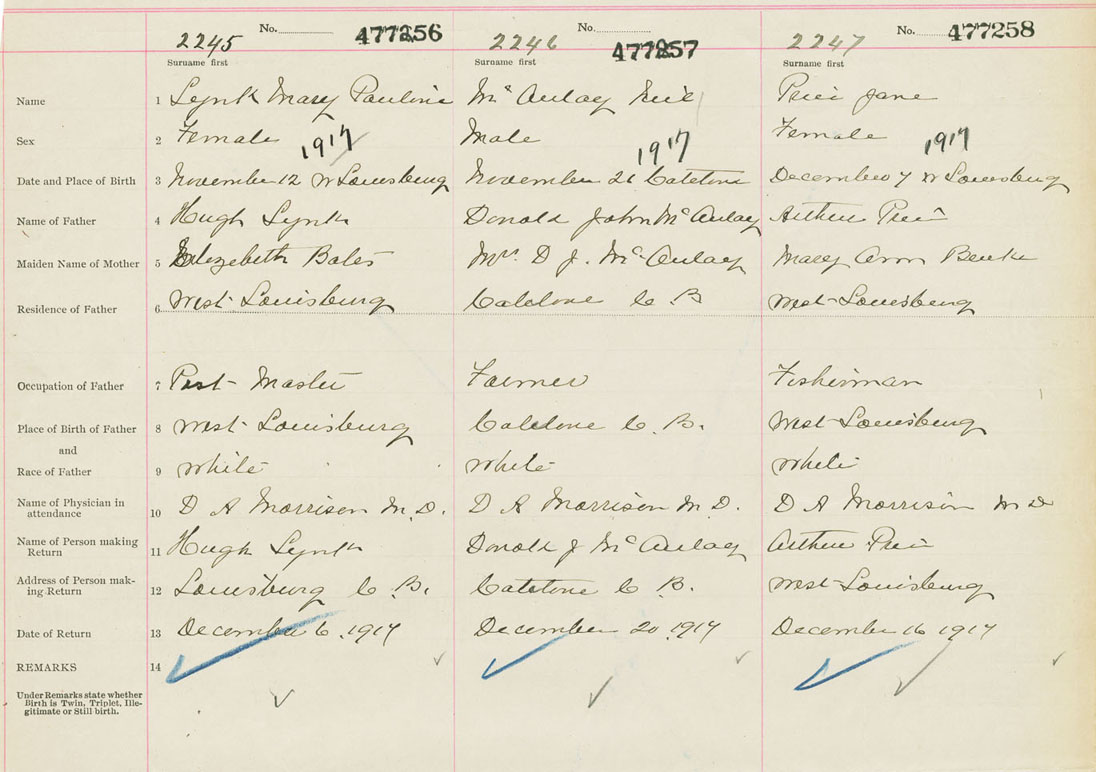 2245 No. 477256 2246 No. 477257 2247 No. 477258
Surname first Surname first Surname first
Name 1 Lynk Mary Pauline Mc Aulay Price Jane
Sex 2 Female Male Female
1917 1917 1917
Date and Place of Birth 3 November 12 W Louisburg November 26 Catalone December 7 W Louisburg
Name of Father 4 Hugh Lynk Donald John McAulay Arthur Price
Maiden Name of Mother 5 Elizebeth Bates Mrs. D J. McAulay Mary Ann
Residence of Father 6 West Louisburg Catalone C B West Louisburg
Occupation of Father 7 Post Master Farmer Fisherman
Place of Birth of Father 8 West Louisburg Catalone C. B. West Louisburg
and
Race of Father 9 White White White
Name of Physician in
attendance 10 D A Morrison M. D. D A Morrison M D. D A Morrison M D
Name of Person making
Return 11 Hugh Lynk Donald J McAulay Arthur Price
Address of Person mak-
ing Return 12 Louisburg C. B. Catalone C B. West Louisburg
Date of Return 13 December 6, 1917 December 20 1917 December 16 1917
REMARKS 14
Under Remarks state whether
Birth is Twin, Triplet, Ille-
gitimate or Still birth.